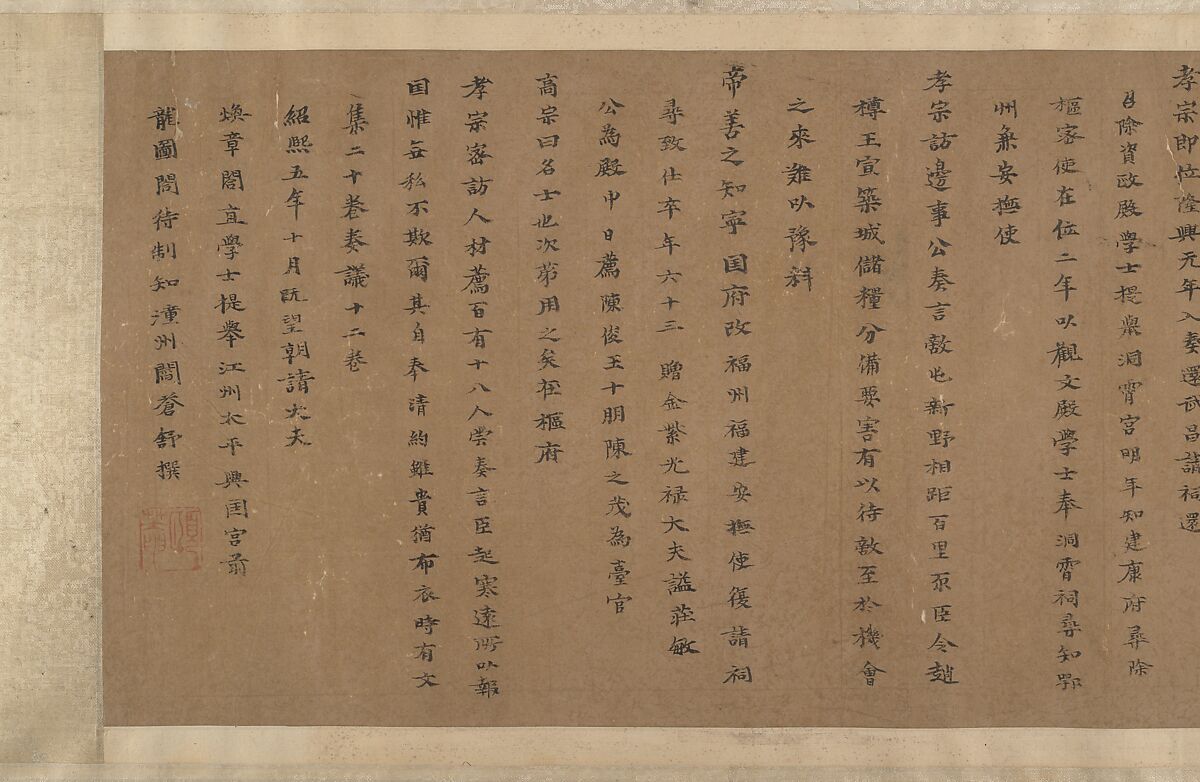 孝宗即位隆興元年入奏還武昌請祠還
除資政殿學士提舉洞霄宮明年知建康府尋除
樞密使在位二年以觀文殿學士奉洞霄祠尋知鄂
州兼安撫使
孝宗訪邊事公奏言敵屯新野相距百里爾臣令趙
樽王宣築城儲糧分備要害有以待敵至於機會
之來難以豫料
帝善之知寧国府改福州福建安撫使復請祠
尋致仕卒年六十三贈金紫光禄大夫謚莊敏
公為殿中日薦陳俊王十朋陳之茂為臺官
高宗曰名士也次第用之矣在樞府
孝宗密訪人材薦百有十八人嘗奏言臣起寒遠所以報
国惟無私不欺爾其自奉清約雖貴猶布衣時有文
集二十卷奏議十二卷
紹熙五年十月既望朝請大夫
煥章閣直學士提舉江州太平興国宮前
龍圖閣待制知潼州閻蒼舒撰